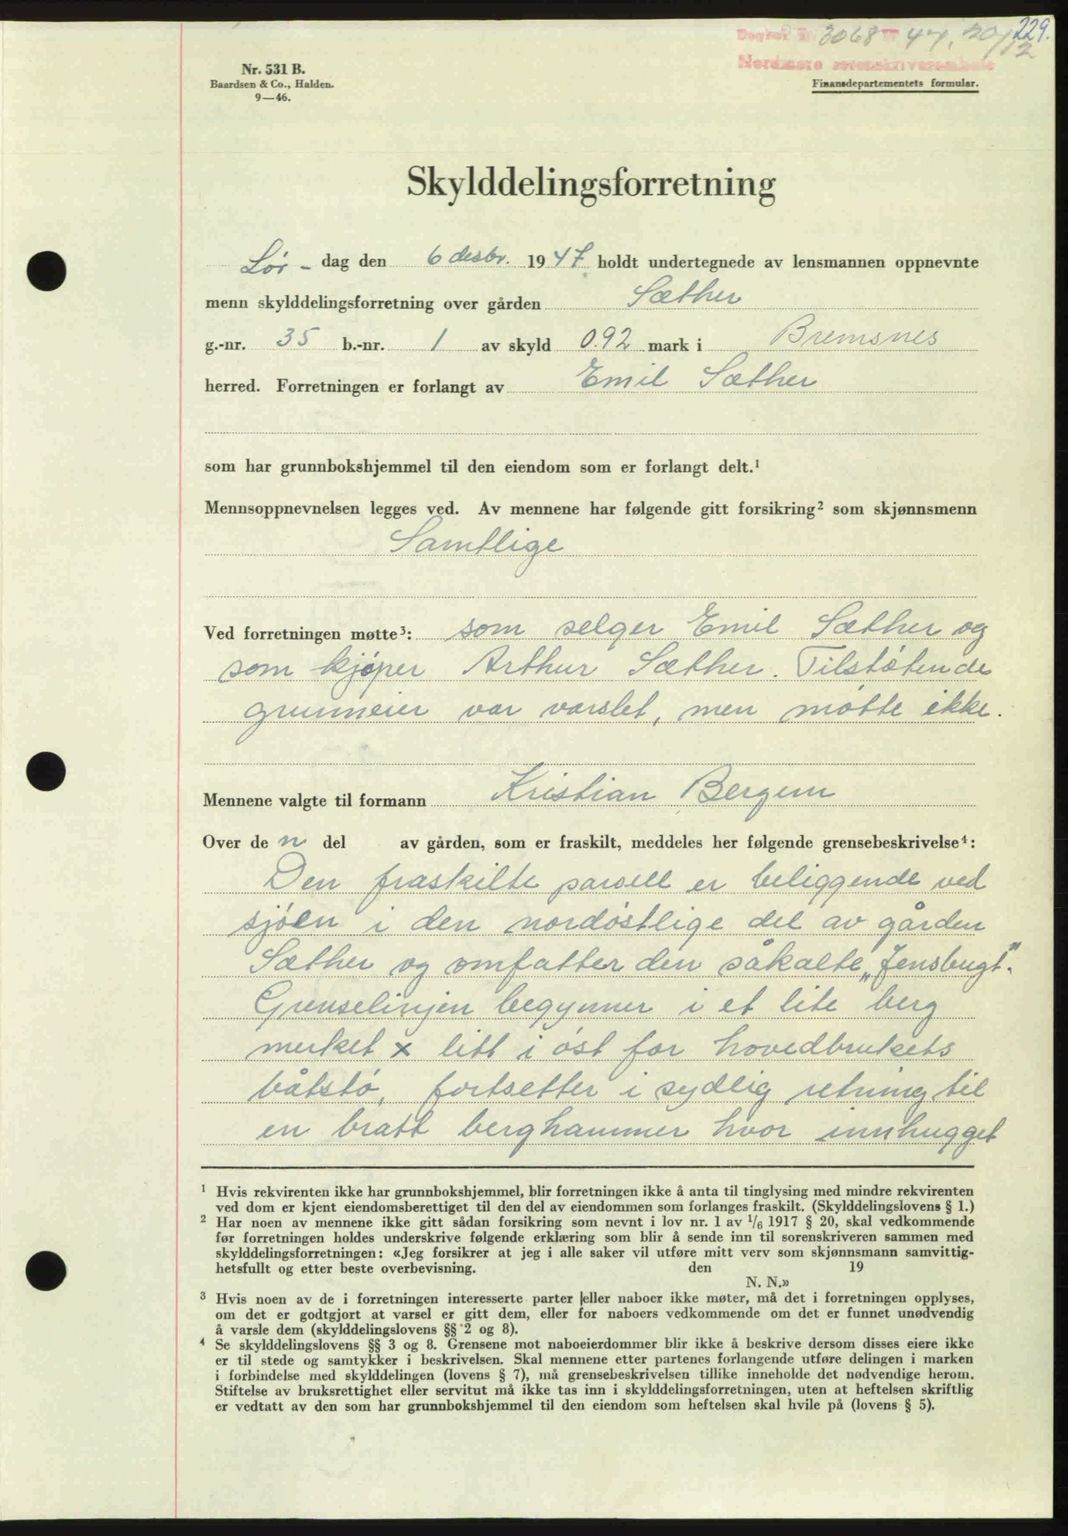 229.
Dagbok nr. 3068 47, 20/12
Nordmøre sorenskriverembede
Nr. 531 B.
Baardsen & Co., Halden.
9—46.
Finansdepartementets formular.
Skylddelingsforretning
Lør- dag den 6 desbr. 1947 holdt undertegnede av lensmannen oppnevnte
menn skylddelingsforretning over gården Sæther
g.-nr. 35 b.-nr. 1 av skyld 0.92 mark i Bremsnes
herred. Forretningen er forlangt av Emil Sæther
som har grunnbokshjemmel til den eiendom som er forlangt delt.¹
Mennsoppnevnelsen legges ved. Av mennene har følgende gitt forsikring² som skjønnsmenn
Samtlige
Ved forretningen møtte³: som selger Emil Sæther og
som kjøper Arthur Sæther. Tilstøtende
grunneier var varslet, men møtte ikke.
Mennene valgte til formann Kristian Bergem
Over de n del av gården, som er fraskilt, meddeles her følgende grensebeskrivelse⁴:
Den fraskilte parsell er beliggende ved
sjøen i den nordøstlige del av gården
Sæther og omfatter den såkalte „Jensbugt“.
Grenselinjen begynner i et lite berg
merket x litt i øst for hovedbrukets
båtstø, fortsetter i sydlig retning til
en bratt berghammer hvor innhugget
¹ Hvis rekvirenten ikke har grunnbokshjemmel, blir forretningen ikke å anta til tinglysing med mindre rekvirenten
ved dom er kjent eiendomsberettiget til den del av eiendommen som forlanges fraskilt. (Skylddelingslovens § 1.)
² Har noen av mennene ikke gitt sådan forsikring som nevnt i lov nr. 1 av 1/6 1917 § 20, skal vedkommende
før forretningen holdes underskrive følgende erklæring som blir å sende inn til sorenskriveren sammen med
skylddelingsforretningen: «Jeg forsikrer at jeg i alle saker vil utføre mitt verv som skjønnsmann samvittig-
hetsfullt og etter beste overbevisning. den 19
N. N.»
³ Hvis noen av de i forretningen interesserte parter eller naboer ikke møter, må det i forretningen opplyses,
om det er godtgjort at varsel er gitt dem, eller for naboers vedkommende om det er funnet unødvendig
å varsle dem (skylddelingslovens §§ 2 og 8).
⁴ Se skylddelingslovens §§ 3 og 8. Grensene mot naboeierdommer blir ikke å beskrive dersom disses eiere ikke
er til stede og samtykker i beskrivelsen. Skal mennene etter partenes forlangende utføre delingen i marken
i forbindelse med skylddelingen (lovens § 7), må grensebeskrivelsen tillike inneholde det nødvendige herom.
Stiftelse av bruksrettighet eller servitut må ikke tas inn i skylddelingsforretningen, uten at heftelsen skriftlig
er vedtatt av den som har grunnbokshjemmel til den eiendom som heftelsen skal hvile på (lovens § 5).